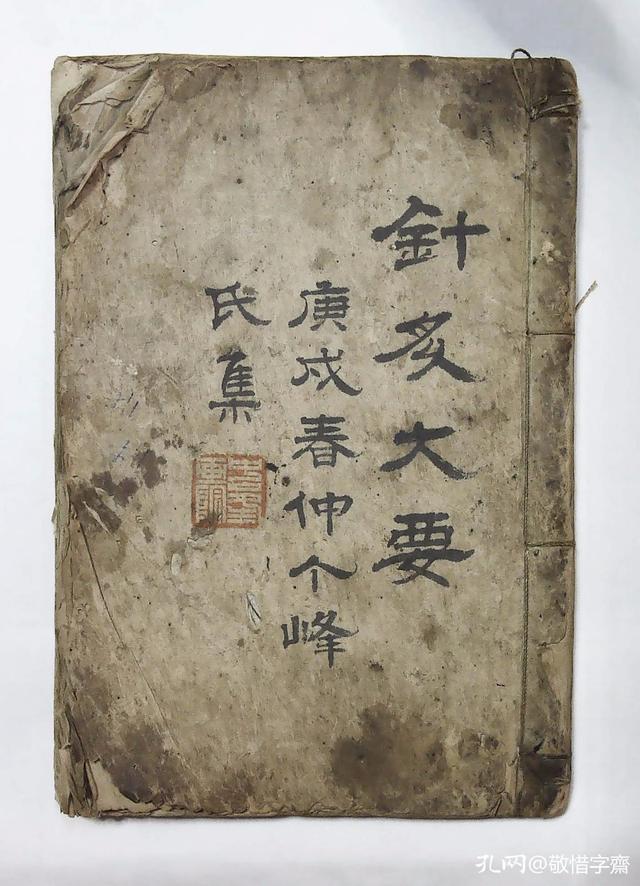 針灸大要
庚戌春仲个峰
氏集
孔网@敬惜字齋